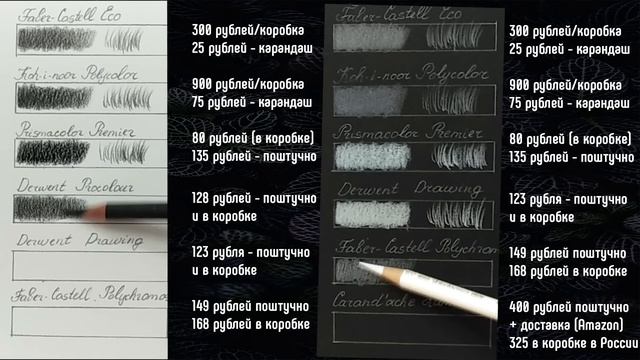 Faber-Castell Eco
300 рублей/коробка
25 рублей - карандаш
Koh-i-noor Polycolor
900 рублей/коробка
75 рублей - карандаш
Prismacolor Premier
80 рублей (в коробке)
135 рублей - поштучно
Derwent Procolour
128 рублей - поштучно
и в коробке
Derwent Drawing
123 рубля - поштучно
и в коробке
Faber-Castell Polychromos
149 рублей поштучно
168 рублей в коробке
Faber-Castell Eco
300 рублей/коробка
25 рублей - карандаш
Koh-i-noor Polycolor
900 рублей/коробка
75 рублей - карандаш
Prismacolor Premier
80 рублей (в коробке)
135 рублей - поштучно
Derwent Drawing
123 рубля - поштучно
и в коробке
Faber-Castell Polychrom
149 рублей поштучно
168 рублей в коробке
Carand'ache
400 рублей поштучно
+ доставка (Amazon)
325 в коробке в России